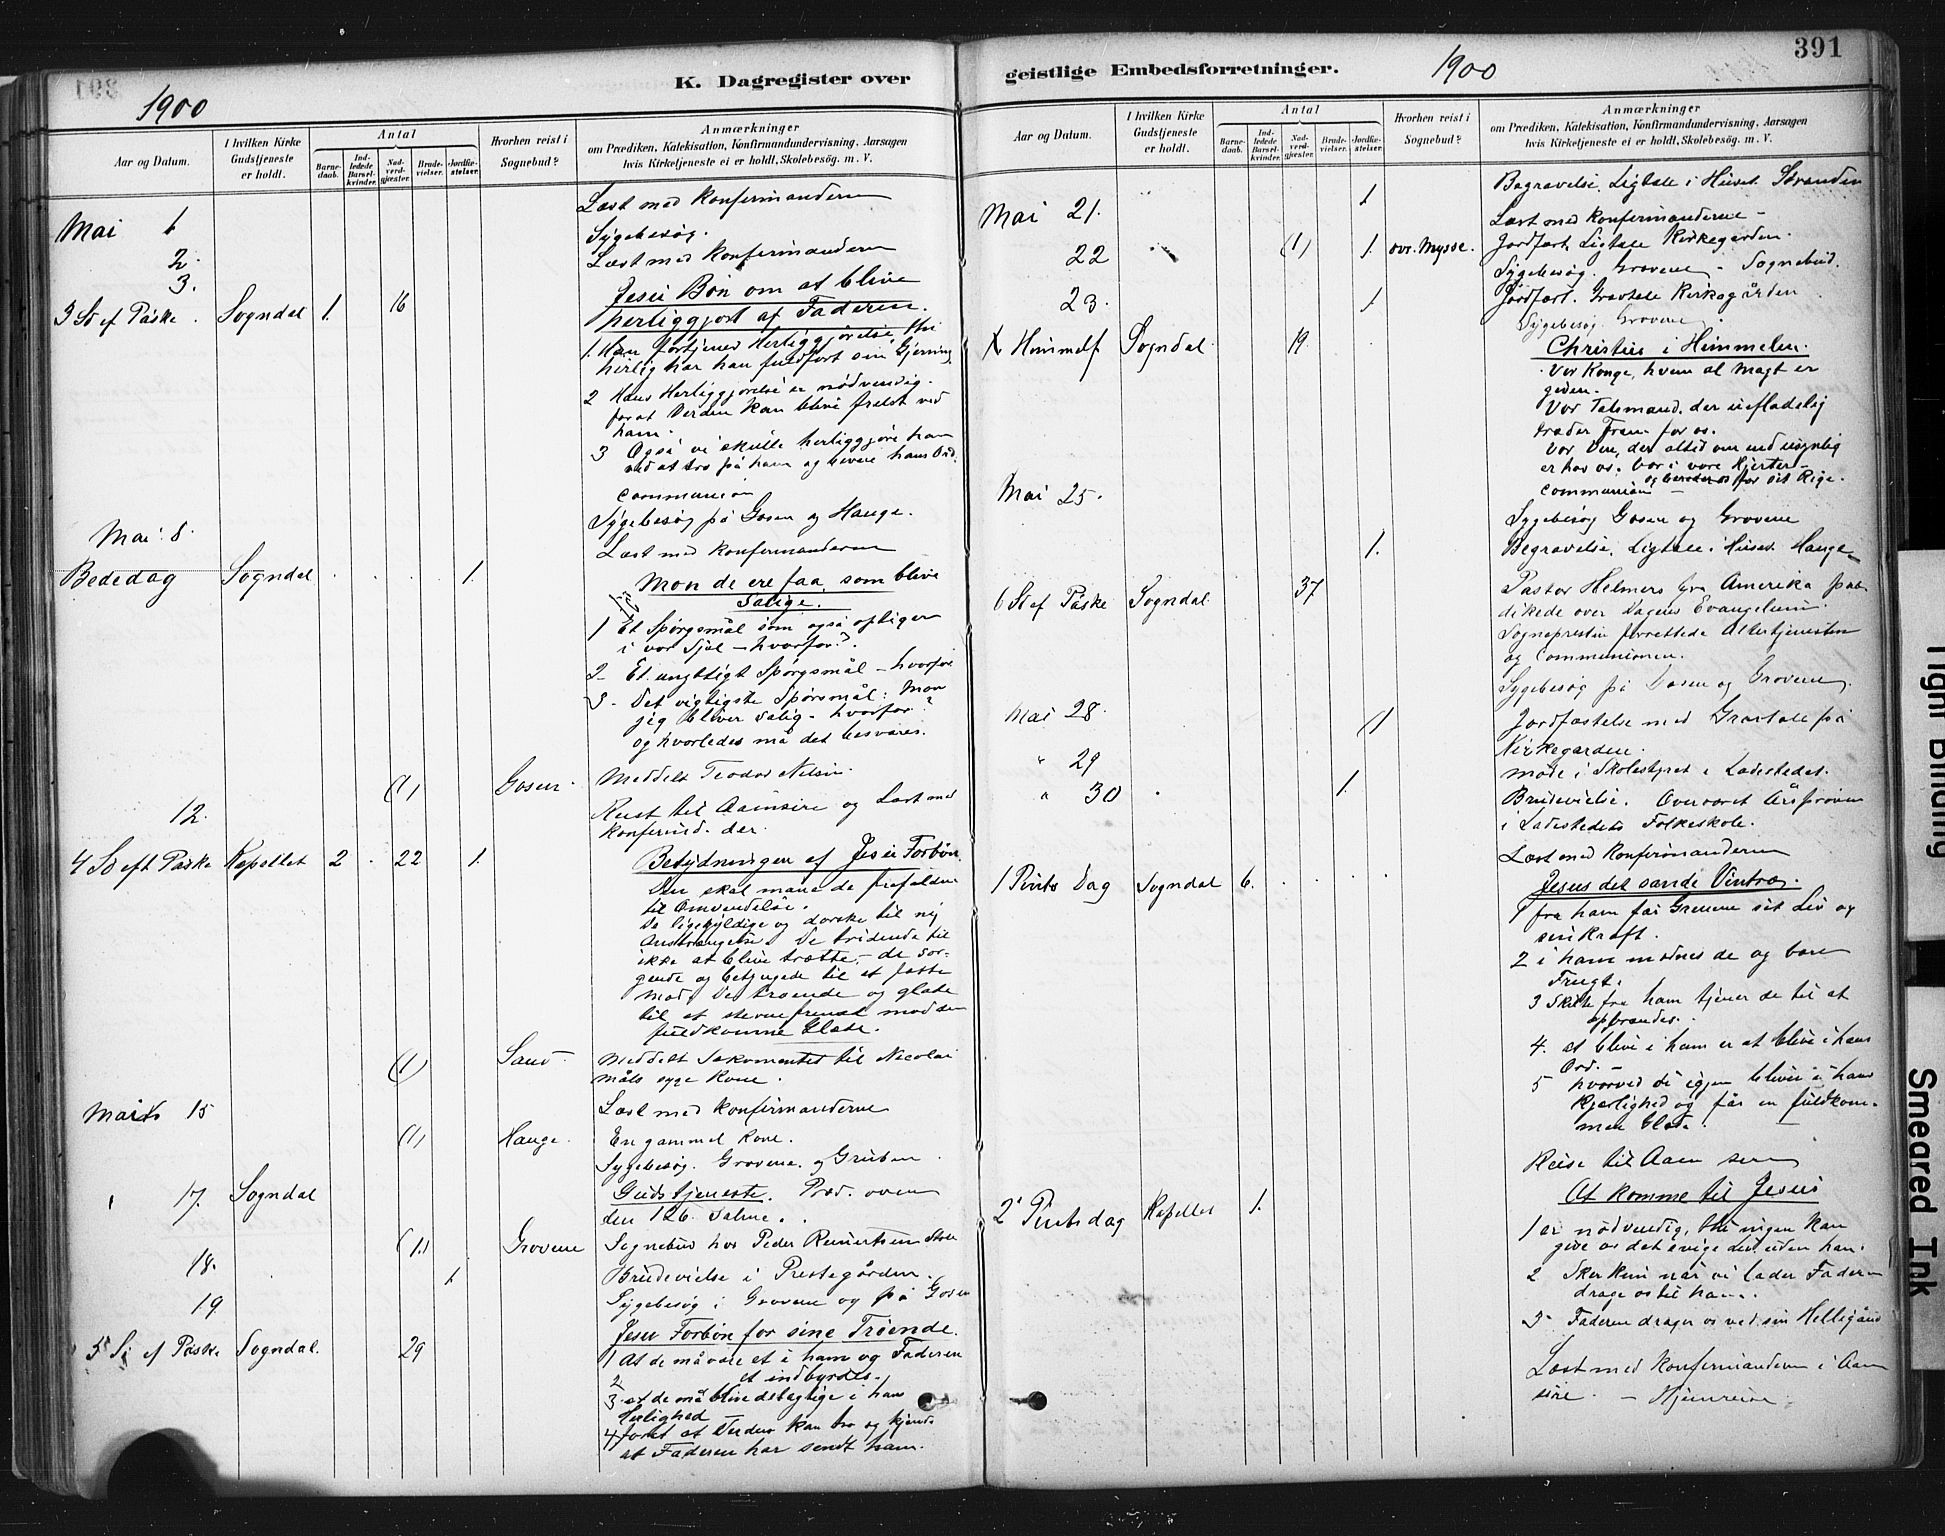 K. Dagregister over
1900
Aar og Datum.
I hvilken Kirke Gudstjeneste er holdt.
Antal
Barnedaab.
Indledede Barselkvinder.
Nadverdgjæster.
Brudevielser.
Jordfæstelser.
Hvorhen reist i Sognebud?
Anmærkninger
om Prædiken, Katekisation, Konfirmandundervisning, Aarsagen
hvis Kirketjeneste ei er holdt, Skolebesøg. m. V.
Mai 1 Læst med Konfirmanderne
2. Sygebesøg.
3. Læst med Konfirmanderne
3 Sø ef Påske. Sogndal 1. 16 Jesu Bøn om at blive
herliggjort af Faderen.
1. Han fortjener Herliggjørelse, thi
herlig har han fuldført sin Gjerning
2 Hans Herliggjørelse er nødvendig.
for at Verden kan blive frelst ved
ham.
3 Også vi skulle herliggjøre ham
ved at tro på ham og bevare hans Ord.
Communion
Mai 8. Sygebesøg på Gosen og Hauge.
Læst med Konfirmanderne
Bededag Sogndal 1. Mon de ere faa, som blive
salige.
1 Et Spørgsmål som også opstiger
i vor Sjæl – hvorfor?
2 Et unyttigt Spørgsmål – hvorfor
3 Det vigtigste Spørsmål: Mon
jeg bliver salig – hvorfor?
og hvorledes må det besvares.
(1) Gosen. Meddelt Teodor Nilsen.
12. Reist til Aamsire og Læst med
Konfirmd. der.
4 Sø eft Påske Kapellet 2 22 1. Betydningen af Jesu Forbøn
Den skal mane de frafaldne
til Omvendelse.
De ligegyldige og dorske til ny
Anstrængelse. De tridende til
ikke at blive trætte, – de sør-
gende og betyngede til at fatte
Mod, De troende og glade
til at stevne fremad mod den
fuldkomne Glæde.
(1) Sand. Meddelt Sakramentet til Nicolai
Måls syge Kone.
Mai 15 Læst med Konfirmanderne
(1) Hauge. En gammel Kone.
Sygebesøg. Grovene. og Gruben.
17. Sogndal Gudstjeneste. Præd. over
den 126. Salme.
18. (1) Grovene Sognebud hos Peder
1 Brudevielse i Prestegården.
19 Sygebesøg i Grovene og på Gosen
5 Sø ef Påske Sogndal. 29 Jesu Forbøn for sine Troende.
1 At de må være et i ham og Faderen
2 et indbyrdes.
3 at de må blive delagtige i hans
Herlighed
4 forat at Verden kan tro og kjende
at Faderen har sendt ham.
geistlige Embedsforretninger.
1900
391
Aar og Datum.
I hvilken Kirke Gudstjeneste er holdt.
Antal
Barnedaab.
Indledede Barselkvinder.
Nadverdgjæster.
Brudevielser.
Jordfæstelser.
Hvorhen reist i Sognebud?
Anmærkninger
om Prædiken, Katekisation, Konfirmandundervisning, Aarsagen
hvis Kirketjeneste ei er holdt, Skolebesøg. m. V.
Mai 21. 1 Begravelse, Ligtale i Huset. Stranden
Læst med Konfirmanderne –
22 (1) 1. ovr. Mysse. Jordfæst. Ligtale Kirkegarden.
Sygebesøg. Grovene – Sognebud.
23. 1 Jordfæst. Gravtale Kirkegården
Sygebesøg. Grovene.
Himmelf Sogndal. 19. Christus i Himmelen.
Vor Konge, hvem al Magt er
given.
Vor Talsmand, der uafladelig
træder frem for os.
Vor Ven, der altid om end usynlig
er hos os. bor i vore Hjerter –
og bereder os for sit Rige.
Communion –
Mai 25. Sygebesøg Gosen og Grovene
1. Begravelse. Ligtale i Huset. Hauge
6 Sø ef Påske Sogndal. 37 Pastor Helmers fra Amerika præ-
dikede over Dagens Evangelium.
Sognepresten forrettede Altertjenesten
og Communionen.
Sygebesøg på Gosen og Grovene.
Mai 28. 1 Jordfæstelse med Gravtale på
Kirkegarden.
" 29 Møde i Skolestyret i Ladestedet.
" 30 1. Brudevielse. Overværet Årsprøven
i Ladestedets Folkeskole.
Læst med Konfirmanderne
1 Pints Dag Sogndal 6. Jesus det sande Vintræ.
1 fra ham får Grenene sit Liv og
sin Kraft.
2 i ham modnes de og bære
Frugt.
3 Skilte fra ham tjener de til at
opbrændes.
4. at blive i ham er at blive i hans
Ord. –
5 hvorved de igjen bliver i hans
Kjærlighed og får en fuldkom-
men Glæde.
Reise til Aam sire
2 Pintsdag Kapellet 1. At komme til Jesus
1 er nødvendig, thi ingen kan
give os det evige Liv uden han.
2 Sker kun når vi lader Faderen
drage os til ham.
3 Faderen drager os ved sin Helligånd
Læst med Konfirmanderne i Aam
sire. – Hjemreise.
Tight Binding
Smeared Ink